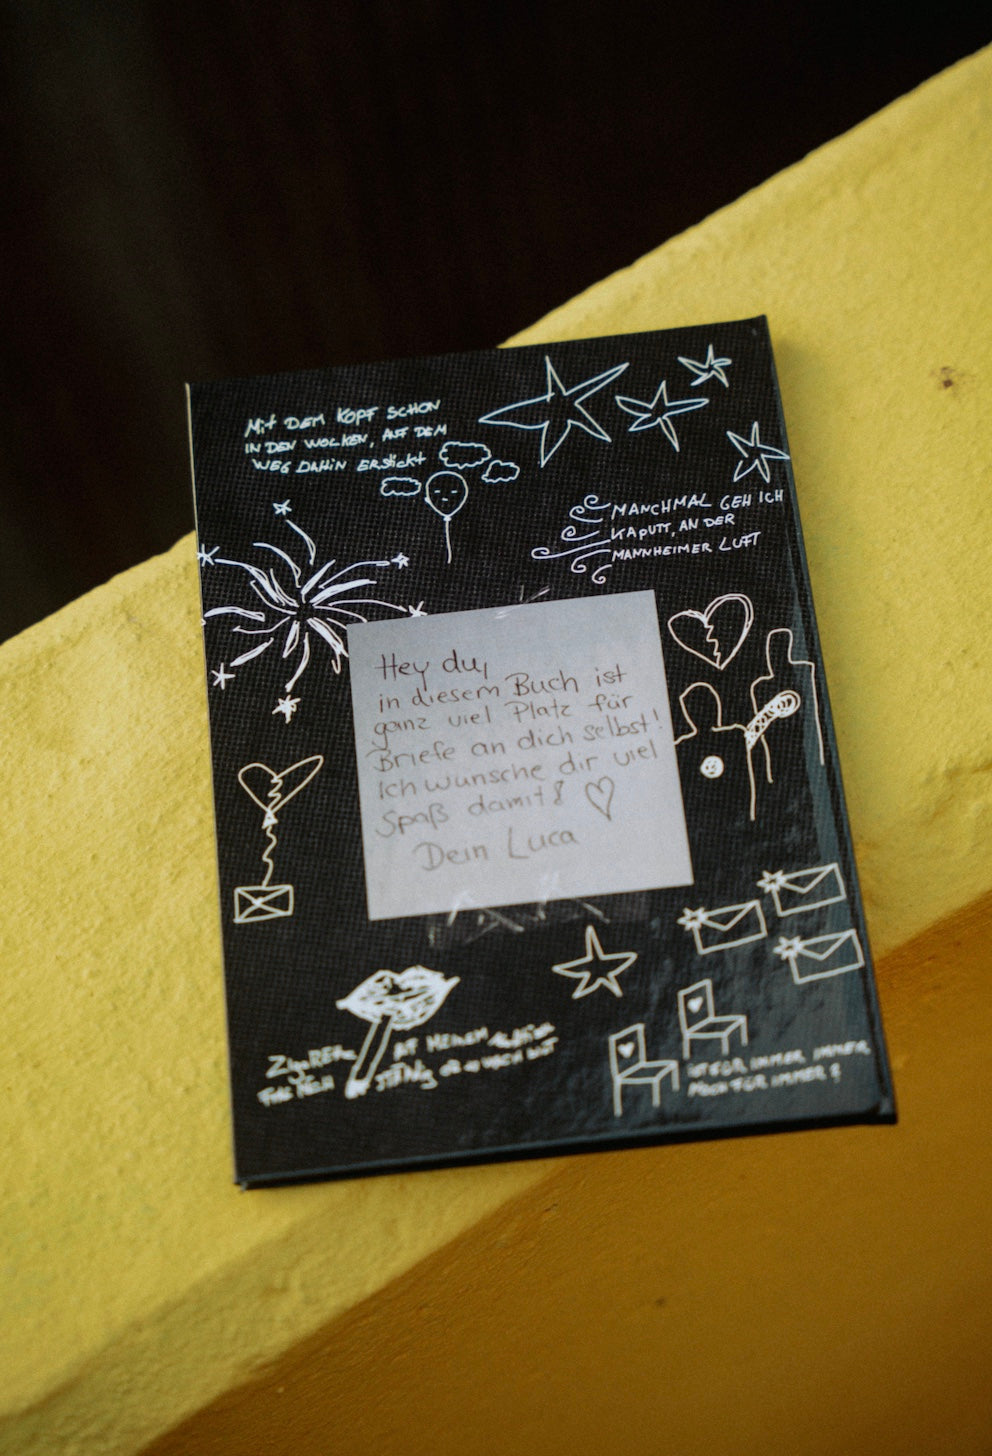 Mit DEM KOPF SCHON
IN DEN WOLKEN, AUF DEM
WEG DAHIN ERStickt
MANCHMAL GEH ICH
KAPUTT, AN DER
MANNHEIMER LUFT
Hey du,
in diesem Buch ist
ganz viel Platz für
Briefe an dich selbst!
Ich wünsche dir viel
Spaß damit!
Dein Luca
IST FÜR IMMER, IMMER,
NOCH FÜR IMMER?